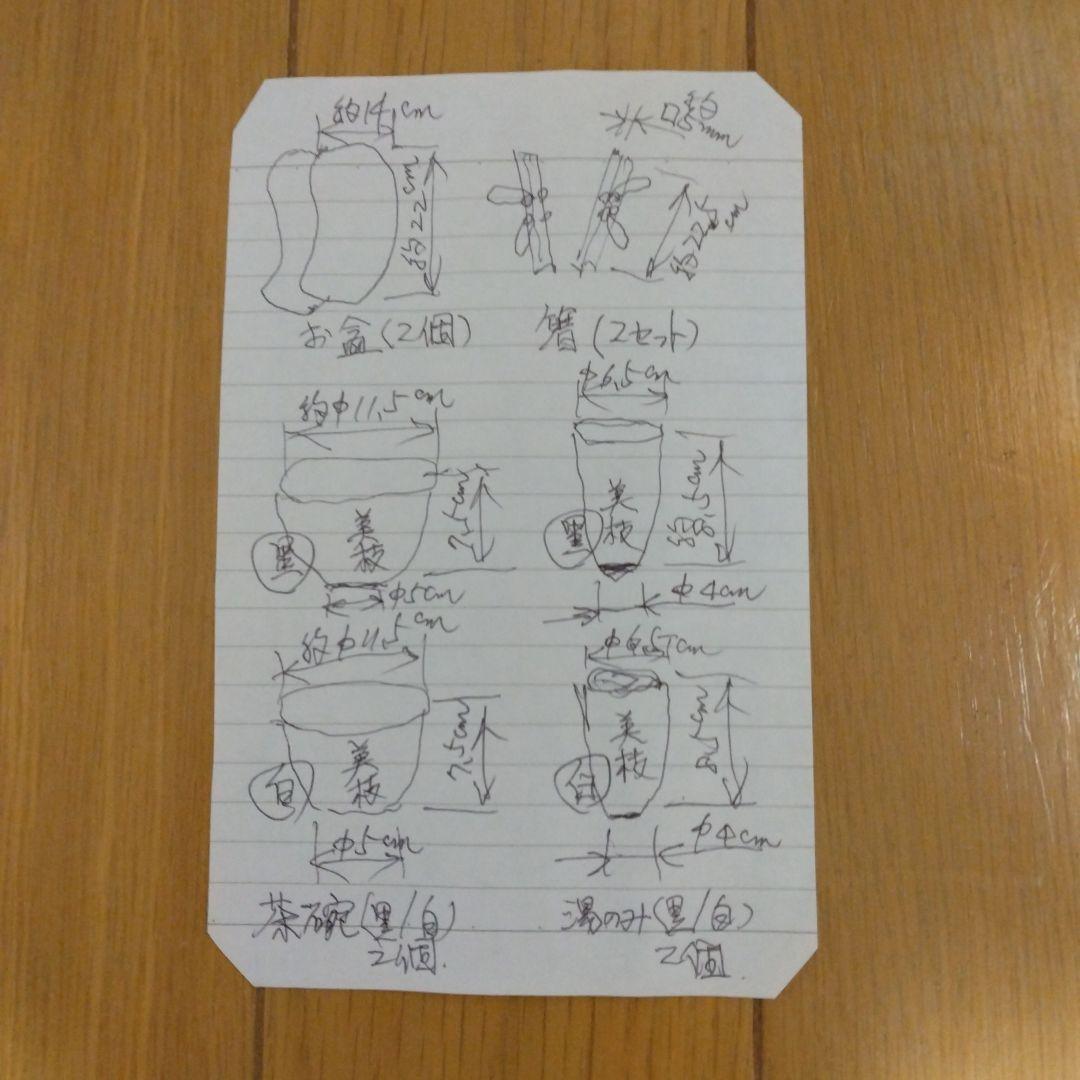 約14cm
約22cm
お盆(2個)
約22.5cm
箸(2セット)
約φ11.5cm
7.5cm
黒
英枝
φ5cm
φ6.5cm
約8.5cm
黒
英枝
φ4cm
約φ11.5cm
7.5cm
白
英枝
φ5cm
茶碗(黒/白)
2個.
φ6.5cm
8.5cm
白
英枝
φ4cm
湯のみ(黒/白)
2個.